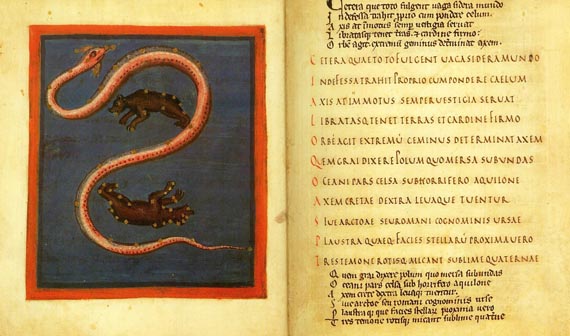 Cetera que toto fulgent uaga sidera mundo
Indefessa trahit ꝓprio cum pondere celum.
Axis at imotus semp uestigia seruat
Libratasq tenet terras. & cardine firmo:
Orbē agit. extremū geminus determinat axem.
CETERA QUAE TOTO FULGENT UAGA SIDERA MUNDO
INDEFESSA TRAHIT PROPRIO CUM PONDERE CAELUM
AXIS AT IMMOTUS SEMPER UESTIGIA SERUAT
LIBRATASQ TENET TERRAS ET CARDINE FIRMO
ORBĒ AGIT EXTREMŪ GEMINUS DETERMINAT AXEM
QUEM GRAI DIXERE POLUM QUO MERSA SUB UNDAS
OCEANI PARS CELSA SUB HORRIFERO AQUILONE
AXEM CRETAE DEXTRA LEUAQUE TUENTUR
SIUE ARCTOE SEU ROMANI COGNOMINIS URSAE
PLAUSTRA QUAEQ: FACIES STELLARŪ PROXIMA UERO
TRES TEMONE ROTISQ: MICANT SUBLIME QUATERNAE
Quem grai dixere polum quo mersa subundas
Oceani pars celsa sub horrifero aquilone
Axem crete dextra leuaq tuentur.
Siue arctoe seu romani cognominis urse
Plaustra que facies stellarū proxima uero
Tres temone rotisq micant sublime quatne